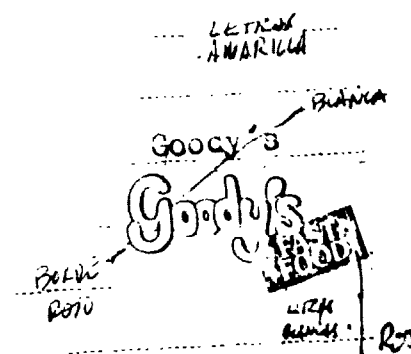 LETRAS
AMARILLA
BLANCA
Goody's
Goody's
FAST
FOOD
BORDE
ROJO
LETRAS